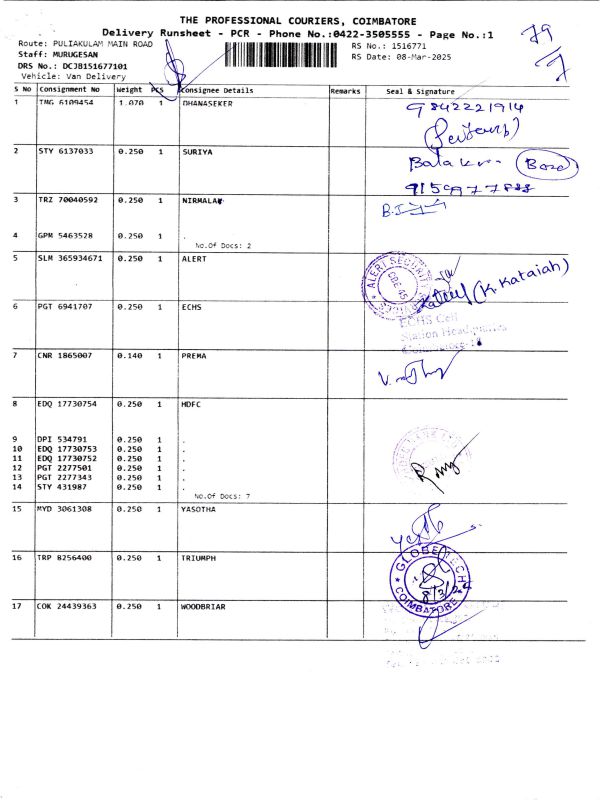 THE PROFESSIONAL COURIERS, COIMBATORE
Delivery Runsheet - PCR - Phone No.:0422-3505555 - Page No.:1
79
7
Route: PULIAKULAM MAIN ROAD
RS No.: 1516771
Staff: MURUGESAN
RS Date: 08-Mar-2025
DRS No.: DCJB151677101
Vehicle: Van Delivery
S No Consignment No Weight PCS Consignee Details Remarks Seal & Signature
1 TMG 6109454 1.070 1 DHANASEKER 9842221914
2 STY 6137033 0.250 1 SURIYA
3 TRZ 70040592 0.250 1 NIRMALA
4 GPM 5463528 0.250 1 .
No.Of Docs: 2
5 SLM 365934671 0.250 1 ALERT
ALERT SECURITY
(K. Kataiah)
6 PGT 6941707 0.250 1 ECHS
ECHS Cell
Station Headquarters
7 CNR 1865007 0.140 1 PREMA
8 EDQ 17730754 0.250 1 HDFC
9 DPI 534791 0.250 1 .
10 EDQ 17730753 0.250 1 .
11 EDQ 17730752 0.250 1 .
12 PGT 2277501 0.250 1 .
13 PGT 2277343 0.250 1 .
14 STY 431987 0.250 1 .
No.Of Docs: 7
15 MYD 3061308 0.250 1 YASOTHA
16 TRP 8256400 0.250 1 TRIUMPH
GLOBE TECH
COIMBATORE
17 COK 24439363 0.250 1 WOODBRIAR